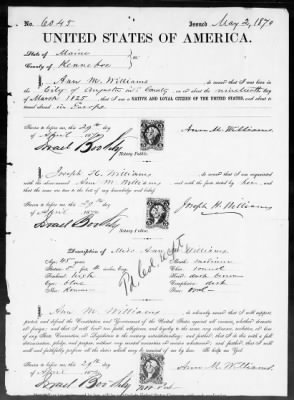 No. 6045 Issued May 2, 1870
UNITED STATES OF AMERICA.
State of Maine
County of Kennebec
I, Ann M. Williams, do swear that I was born in the
City of Augusta in County, on the nineteenth day of
March 1825, that I am a NATIVE AND LOYAL CITIZEN OF THE UNITED STATES, and about to
travel abroad in Europe
Sworn to before me, this 29th day
of April 1870
Ann M. Williams
Israel Boothby
Notary Public.
I, Joseph H. Williams, do swear that I am acquainted
with the above-named Ann M. Williams and with the facts stated by her, and
that the same are true to the best of my knowledge and belief.
Sworn to before me, this 29th day
of April 1870
Joseph H. Williams
Israel Boothby
Notary Public.
Description of Miss Ann Williams
Age: 45 years Mouth: medium
Stature: 5 Chin: round
Forehead: high Hair: dark brown
Eyes: blue Complexion: dark
Nose: Roman Face: oval
I, Ann M. Williams, do solemnly swear that I will support,
protect and defend the Constitution and Government of the United States against all enemies, whether domestic
or foreign; and that I will bear true faith, allegiance and loyalty to the same, any ordinance, resolution, or law
of any State, Convention or Legislature to the contrary notwithstanding; and further, that I do this with a full
determination, pledge, and purpose, without any mental reservation or evasion whatsoever; and further, that I will
well and faithfully perform all the duties which may be required of me by law. So help me God.
Sworn to before me, this 29th day
of April 1870
Ann M. Williams
Israel Boothby